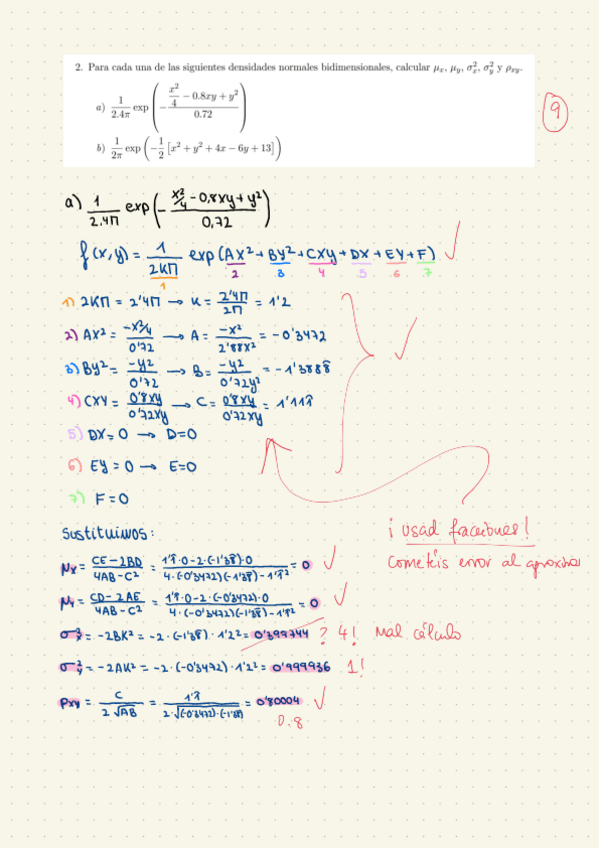 2. Para cada una de las siguientes densidades normales bidimensionales, calcular μₓ, μᵧ, σₓ², σᵧ² y ρₓᵧ.
a) 1/2.4π exp(-(x²/4 - 0.8xy + y²)/0.72)
b) 1/2π exp(-1/2 [x² + y² + 4x - 6y + 13])
9
a) 1/2.4π exp(-(x²/4 - 0,8xy + y²)/0,72)
f(x,y) = 1/2Kπ exp(AX² + BY² + CXY + DX + EY + F) ✓
1 2 3 4 5 6 7
1) 2Kπ = 2'4π → K = 2'4π/2π = 1'2
2) AX² = (-x²/4)/0'72 → A = -x²/2'88x² = -0'3472
3) BY² = -y²/0'72 → B = -y²/0'72y² = -1'3888̂
4) CXY = 0'8xy/0'72xy → C = 0'8xy/0'72xy = 1'11̂
5) DX = 0 → D=0
6) EY = 0 → E=0
7) F = 0
✓
¡usad fracciones!
Cometéis error al aproximar
Sustituimos:
μx = (CE - 2BD)/(4AB - C²) = (1'1̂·0 - 2·(-1'38̂)·0)/(4·(-0'3472)(-1'38̂) - 1'1̂²) = 0 ✓
μy = (CD - 2AE)/(4AB - C²) = (1'1̂·0 - 2·(-0'3472)·0)/(4·(-0'3472)(-1'38̂) - 1'1̂²) = 0 ✓
σ²x = -2BK² = -2·(-1'38̂)·1'2² = 0'399744 ? 4! Mal cálculo
σ²y = -2AK² = -2·(-0'3472)·1'2² = 0'999936 1!
ρxy = C/2√AB = 1'1̂/2·√(-0'3472)·(-1'38̂) = 0'80004 ✓
0.8